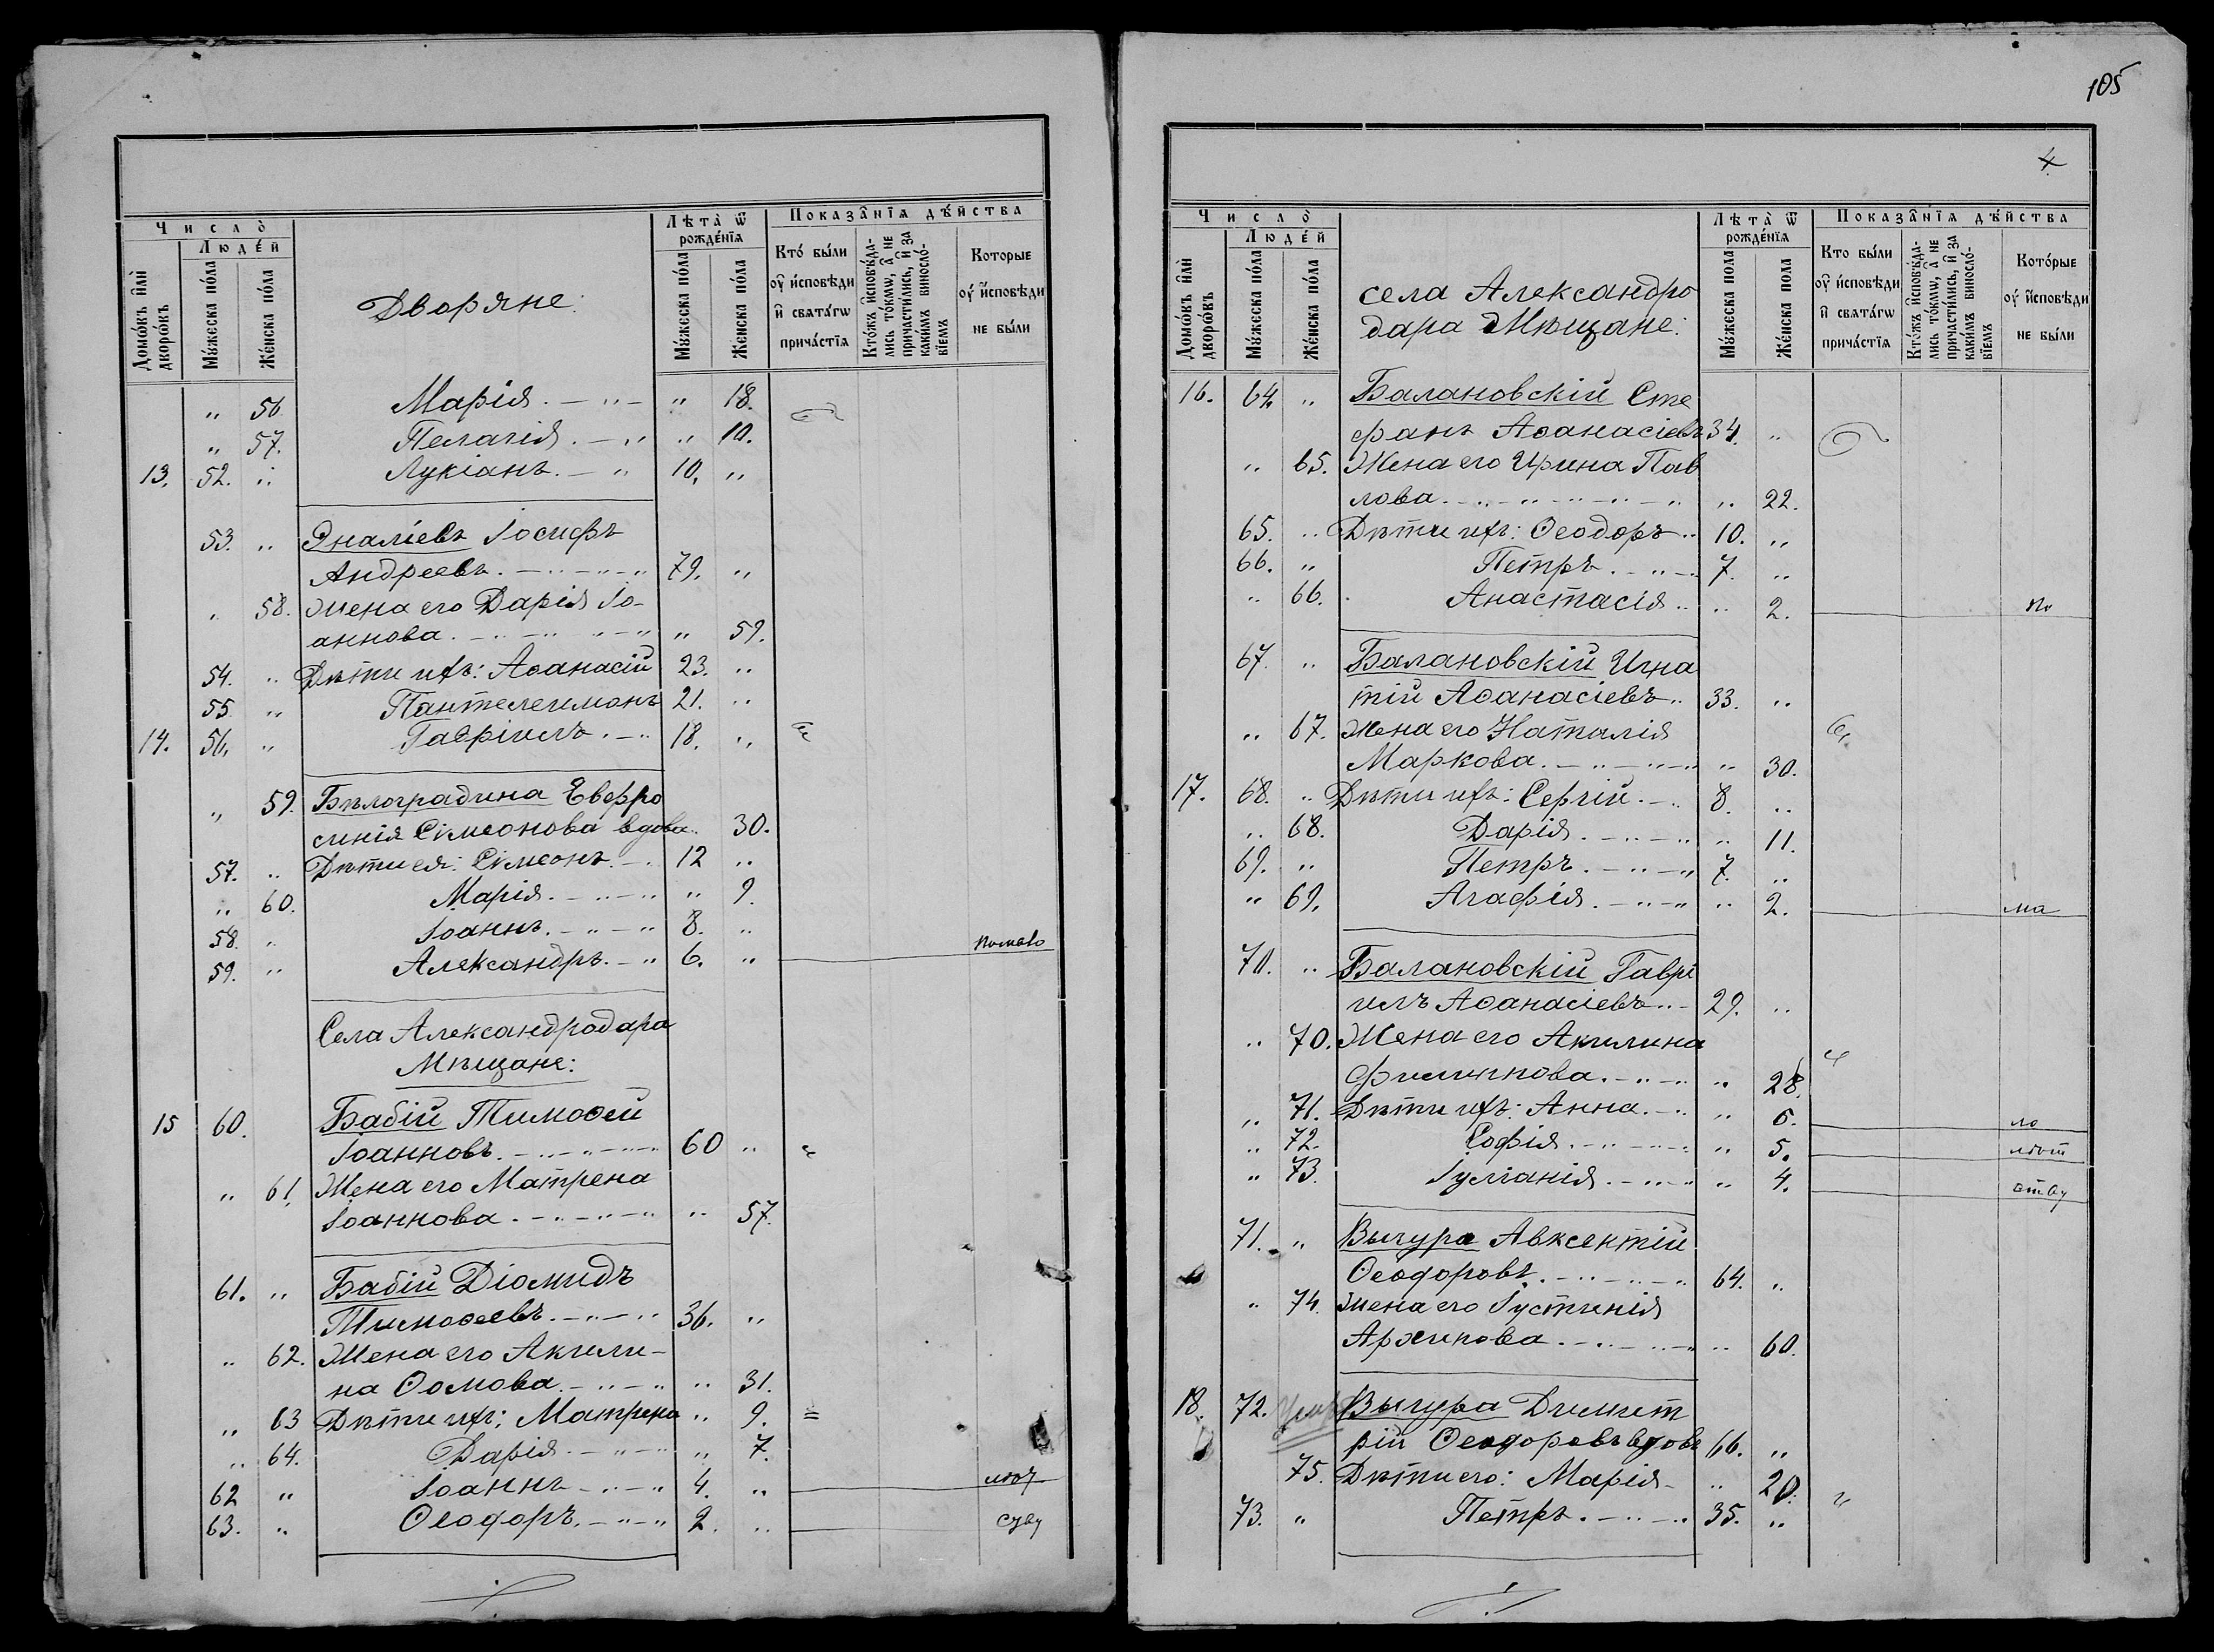 Число̀
Домѡ́въ и҆лѝ дворѡ́въ
Люде́й
Му́жеска по́ла
Же́нска по́ла
Дворяне:
Лѣта̀ ѿ рожде́нїѧ
Му́жеска по́ла
Же́нска по́ла
Показа̂нїѧ дѣ́йства
Кто́ бы́ли оу҆ и҆́сповѣди и҆ свѧта́гѡ прича́стїѧ
Кто́жъ и҆сповѣ́да-
лись то́кмѡ, а҆ не
причасти́лись, и҆ за
каки́мъ виносло́-
вїемъ
Которые оу҆ и҆́сповѣди не бы́ли
„ 56. Марія. — „ — „ 18.
„ 57. Пелагія. — „ „ 10.
13. 52. „ Лукіанъ. — „ 10. „
53. „ Эналіевъ Іосифъ
Андреевъ. — „ — „ — „ 79. „
„ 58. Жена его Дарія Іо-
аннова. — „ — „ — „ „ 59.
54. „ Дѣти ихъ: Аѳанасій 23. „
55. „ Пантелеимонъ 21. „
14. 56. „ Гавріилъ. — „ 18. „
„ 59. Бѣлоградина Евфро
синія Сімеонова вдова „ 30.
57. „ Дѣти ея: Сімеонъ. — „ 12 „
„ 60. Марія. — „ — „ „ 9.
58. „ Іоаннъ. — „ — „ 8. „
59. „ Александръ. — „ 6. „ по мало
Села Александродара
Мѣщане:
15 60. Бабій Тимоѳей
Іоанновъ. — „ — „ — „ 60 „
„ 61. Жена его Матрена
Іоаннова. — „ — „ — „ „ 57.
61. „ Бабій Діомидъ
Тимоѳеевъ. — „ — „ 36. „
„ 62. Жена его Акили-
на Ѳомова. — „ — „ „ 31.
„ 63 Дѣти ихъ: Матрена „ 9.
„ 64. Дарія — „ — „ „ 7.
62 „ Іоаннъ — „ — „ 4. „
63. „ Ѳеодоръ. — „ — „ 2. „
105
4
Число̀
Домѡ́въ и҆лѝ дворѡ́въ
Люде́й
Му́жеска по́ла
Же́нска по́ла
села Александро
дара Мѣщане:
Лѣта̀ ѿ рожде́нїѧ
Му́жеска пола
Же́нска пола
Показа̂нїѧ дѣ́йства
Кто бы́ли оу҆ и҆сповѣди и҆ свѧта́гѡ прича́стїѧ
Кто́жъ и҆сповѣ́да-
лись то́кмѡ, а҆ не
причасти́лись, и҆ за
каки́мъ виносло́-
вїемъ
Кото́рые оу҆ и҆́сповѣди не бы́ли
16. 64. „ Балановскій Сте
фанъ Аѳанасіевъ 34. „
„ 65. Жена его Ирина Пав
лова. — „ — „ — „ — „ „ 22.
65. „ Дѣти ихъ: Ѳеодоръ „ 10. „
66. „ Петръ. — „ — 7. „
„ 66. Анастасія „ „ 2. по
67. „ Балановскій Игна
тій Аѳанасіевъ „ 33. „
„ 67. Жена его Наталія
Маркова. — „ — „ — „ „ 30.
17. 68. „ Дѣти ихъ: Сергій. — „ 8. „
„ 68. Дарія. — „ — „ „ 11.
69. „ Петръ. — „ — „ 7. „
„ 69. Агафія. — „ — „ „ 2. ма
70. „ Балановскій Гаврі
илъ Аѳанасіевъ „ — 29. „
„ 70. Жена его Акилина
Филиппова. — „ — „ „ 28.
„ 71. Дѣти ихъ: Анна. — „ „ 6. ло
„ 72. Софія. — „ — „ „ 5. лѣт
„ 73. Іуліанія. — „ — „ „ 4. ству
71. „ Вычура Авксентій
Ѳеодоровъ. — „ — „ — „ 64. „
„ 74. Жена его Іустинія
Архипова. — „ — „ — „ „ 60.
18. 72. Умеръ Вычура Димит
рій Ѳеодоровъ вдовъ 66. „
75. Дѣти его: Марія — „ 20.
73. „ Петръ. — „ — „ 35. „